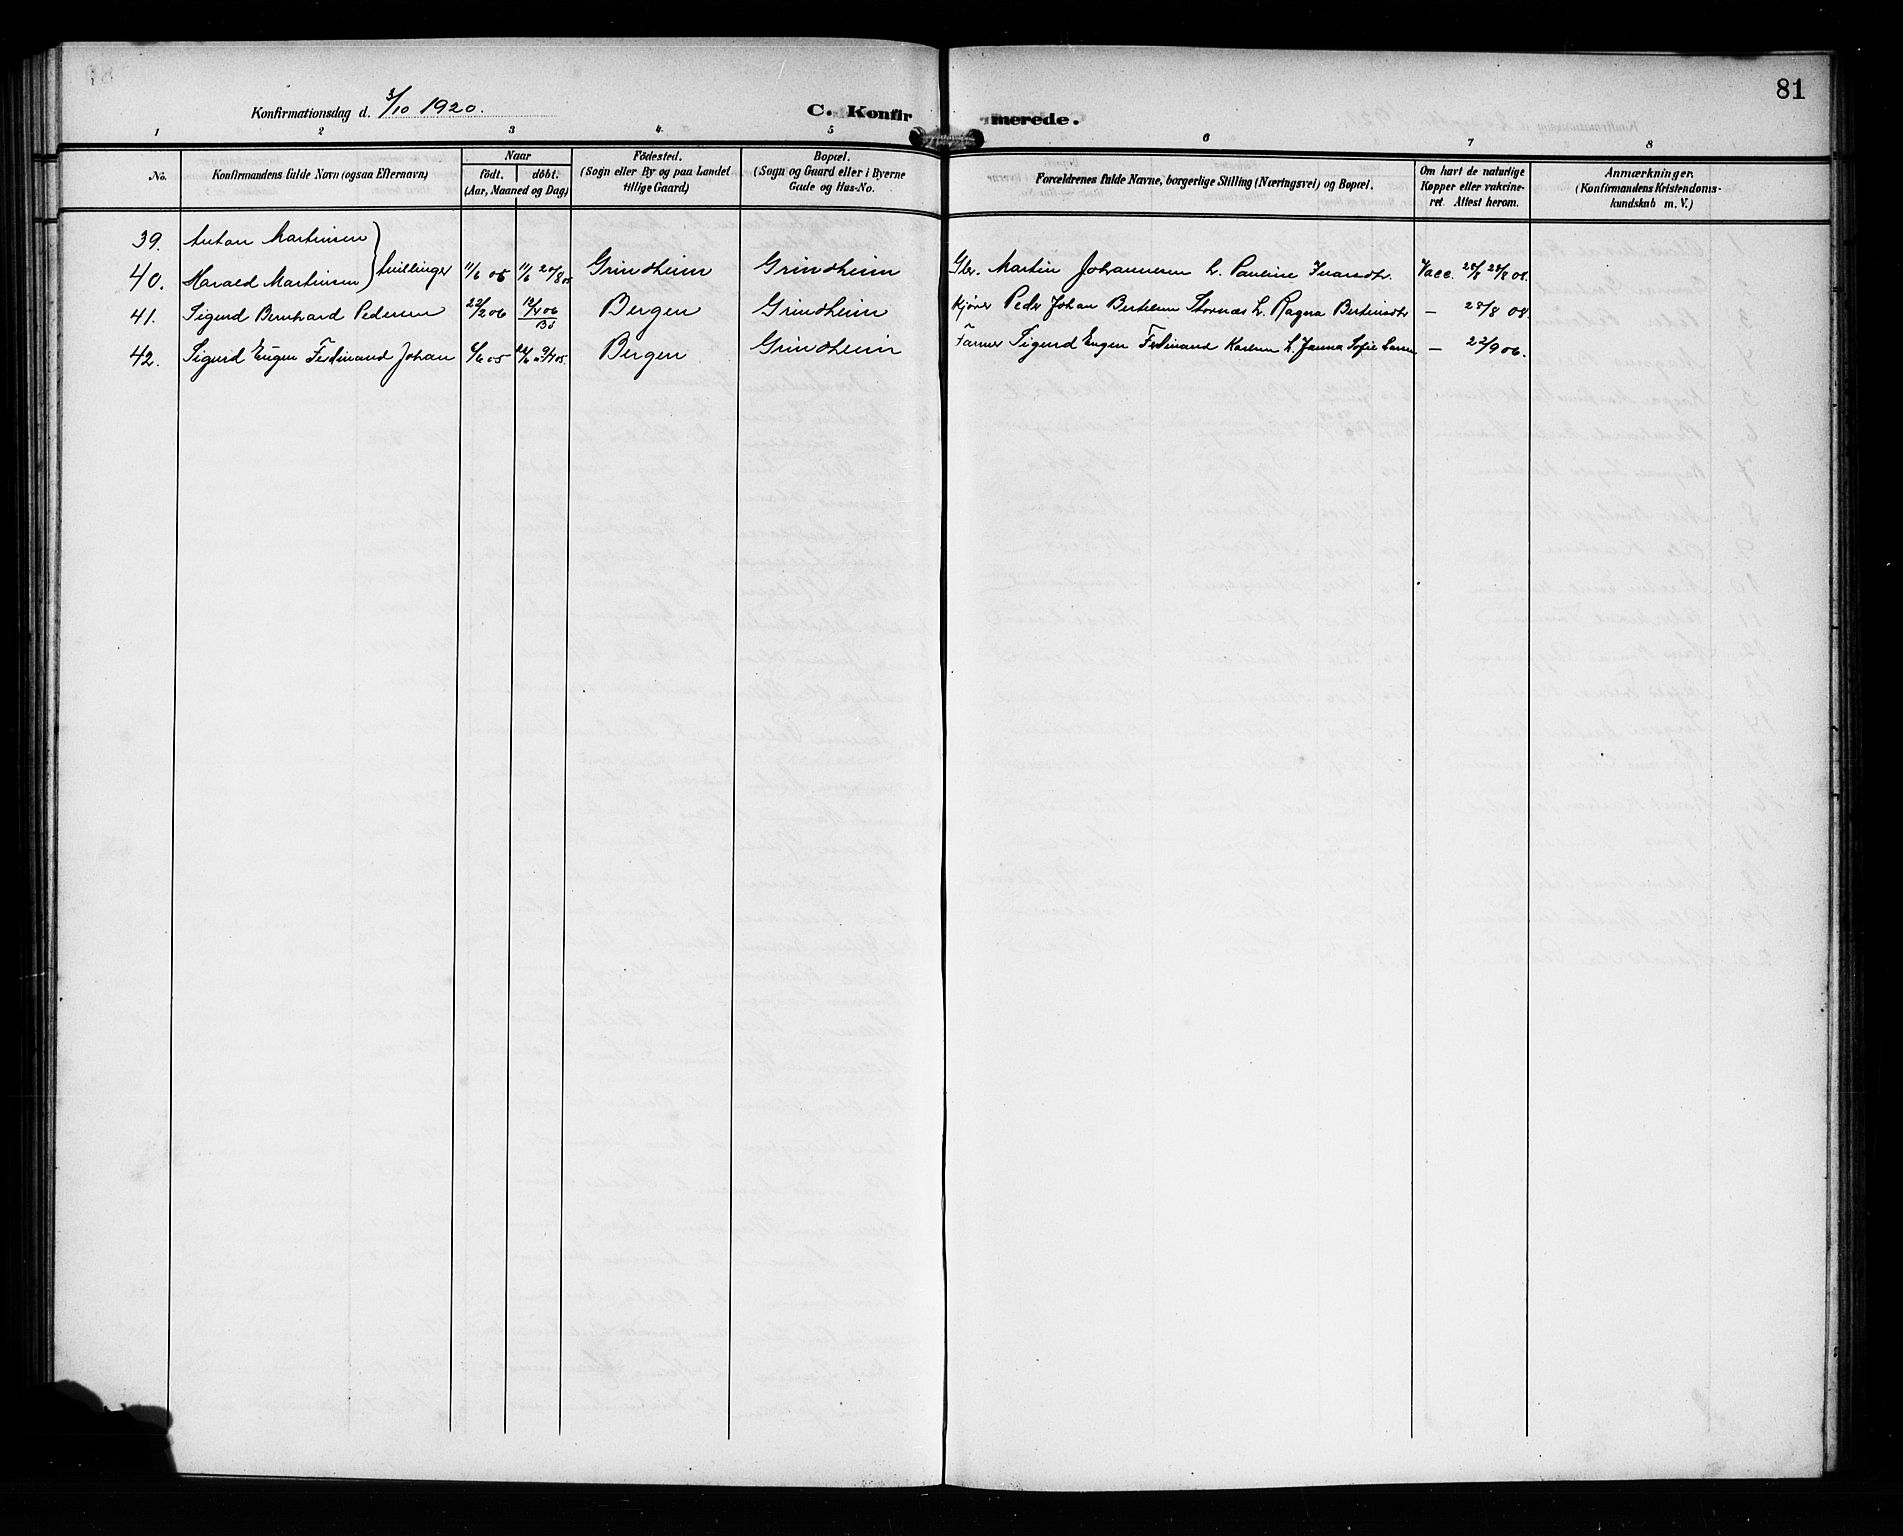 81
Konfirmationsdag d. 3/10 1920.
C. Konfir-merede.
1 2 3 4. 5 6 7 8
No. Konfirmandens fulde Navn (ogsaa Efternavn) Naar födt. döbt. (Aar, Maaned og Dag) Födested. (Sogn eller By og paa Landet tillige Gaard) Bopæl. (Sogn og Gaard eller i Byerne Gade og Hus-No.) Forældrenes fulde Navne, borgerlige Stilling (Næringsvei) og Bopæl. Om havt de naturlige Kopper eller vakcineret. Attest herom. Anmærkninger. (Konfirmandens Kristendomskundskab m. V.)
39. Anton Martinsen
40. Harald Martinsen } tvillinger 11/6 05 11/6 20/8 05 Grindheim Grindheim Gbr. Martin Johannesen h. Pauline Ivarsdtr. Vacc. 28/8 28/8 08.
41. Sigurd Bernhard Pedersen 22/2 06 Bergen Grindheim Kjörer Peder Johan Bertelsen Stornæs h. Ragna Bertinsdtr — 28/8 08.
42. Sigurd Eugen Ferdinand Johan 6/6 05 Bergen Grindheim Sigurd Eugen Ferdinand Karlsen h. Janna Sofie — 22/9 06.